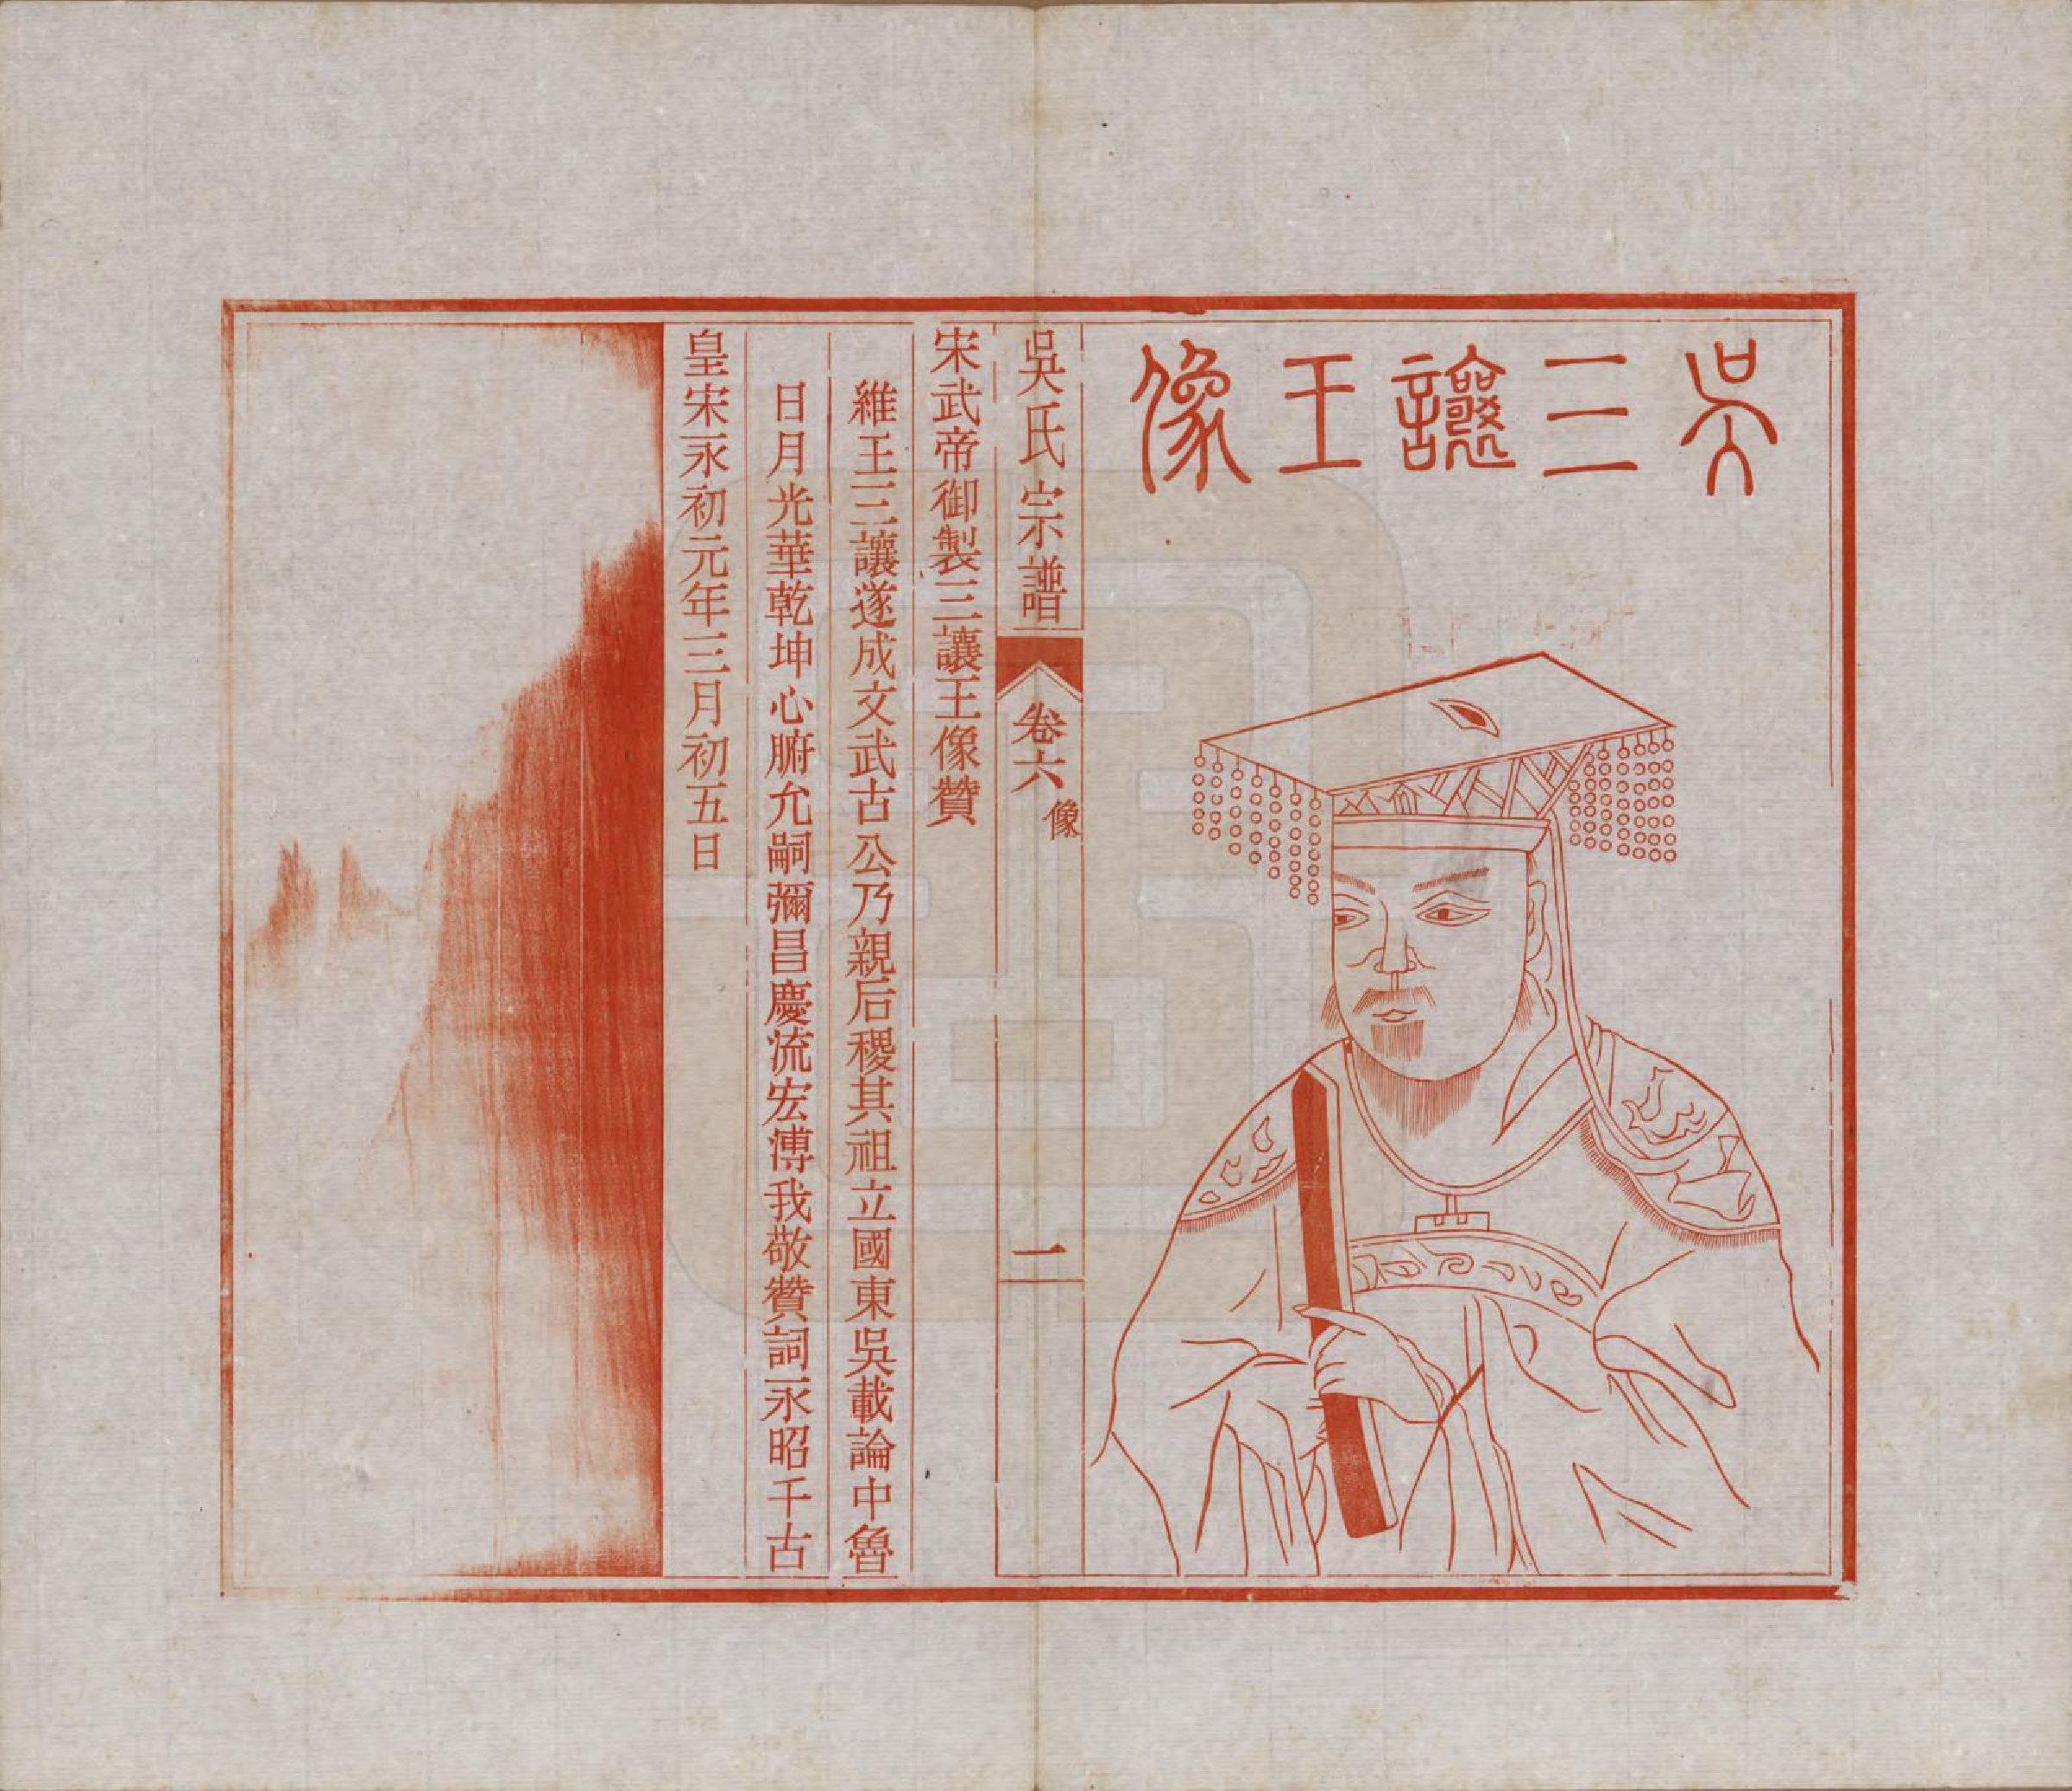 吳三讓王像
吳氏宗譜
卷六
像
一
宋武帝御製三讓王像贊
維王三讓遂成文武古公乃親后稷其祖立國東吳載論中魯
日月光華乾坤心腑允嗣彌昌慶流宏溥我敬贊詞永昭千古
皇宋永初元年三月初五日